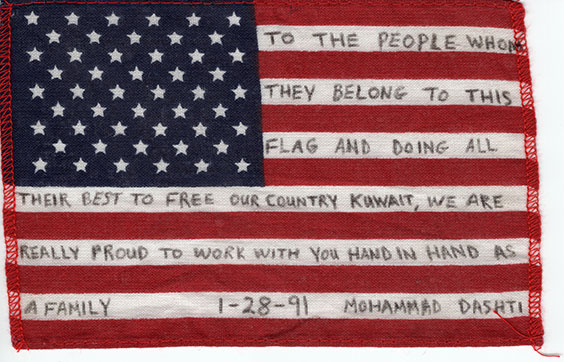 TO THE PEOPLE WHOM
THEY BELONG TO THIS
FLAG AND DOING ALL
THEIR BEST TO FREE OUR COUNTRY KUWAIT, WE ARE
REALLY PROUD TO WORK WITH YOU HAND IN HAND AS
A FAMILY 1-28-91 MOHAMMAD DASHTI